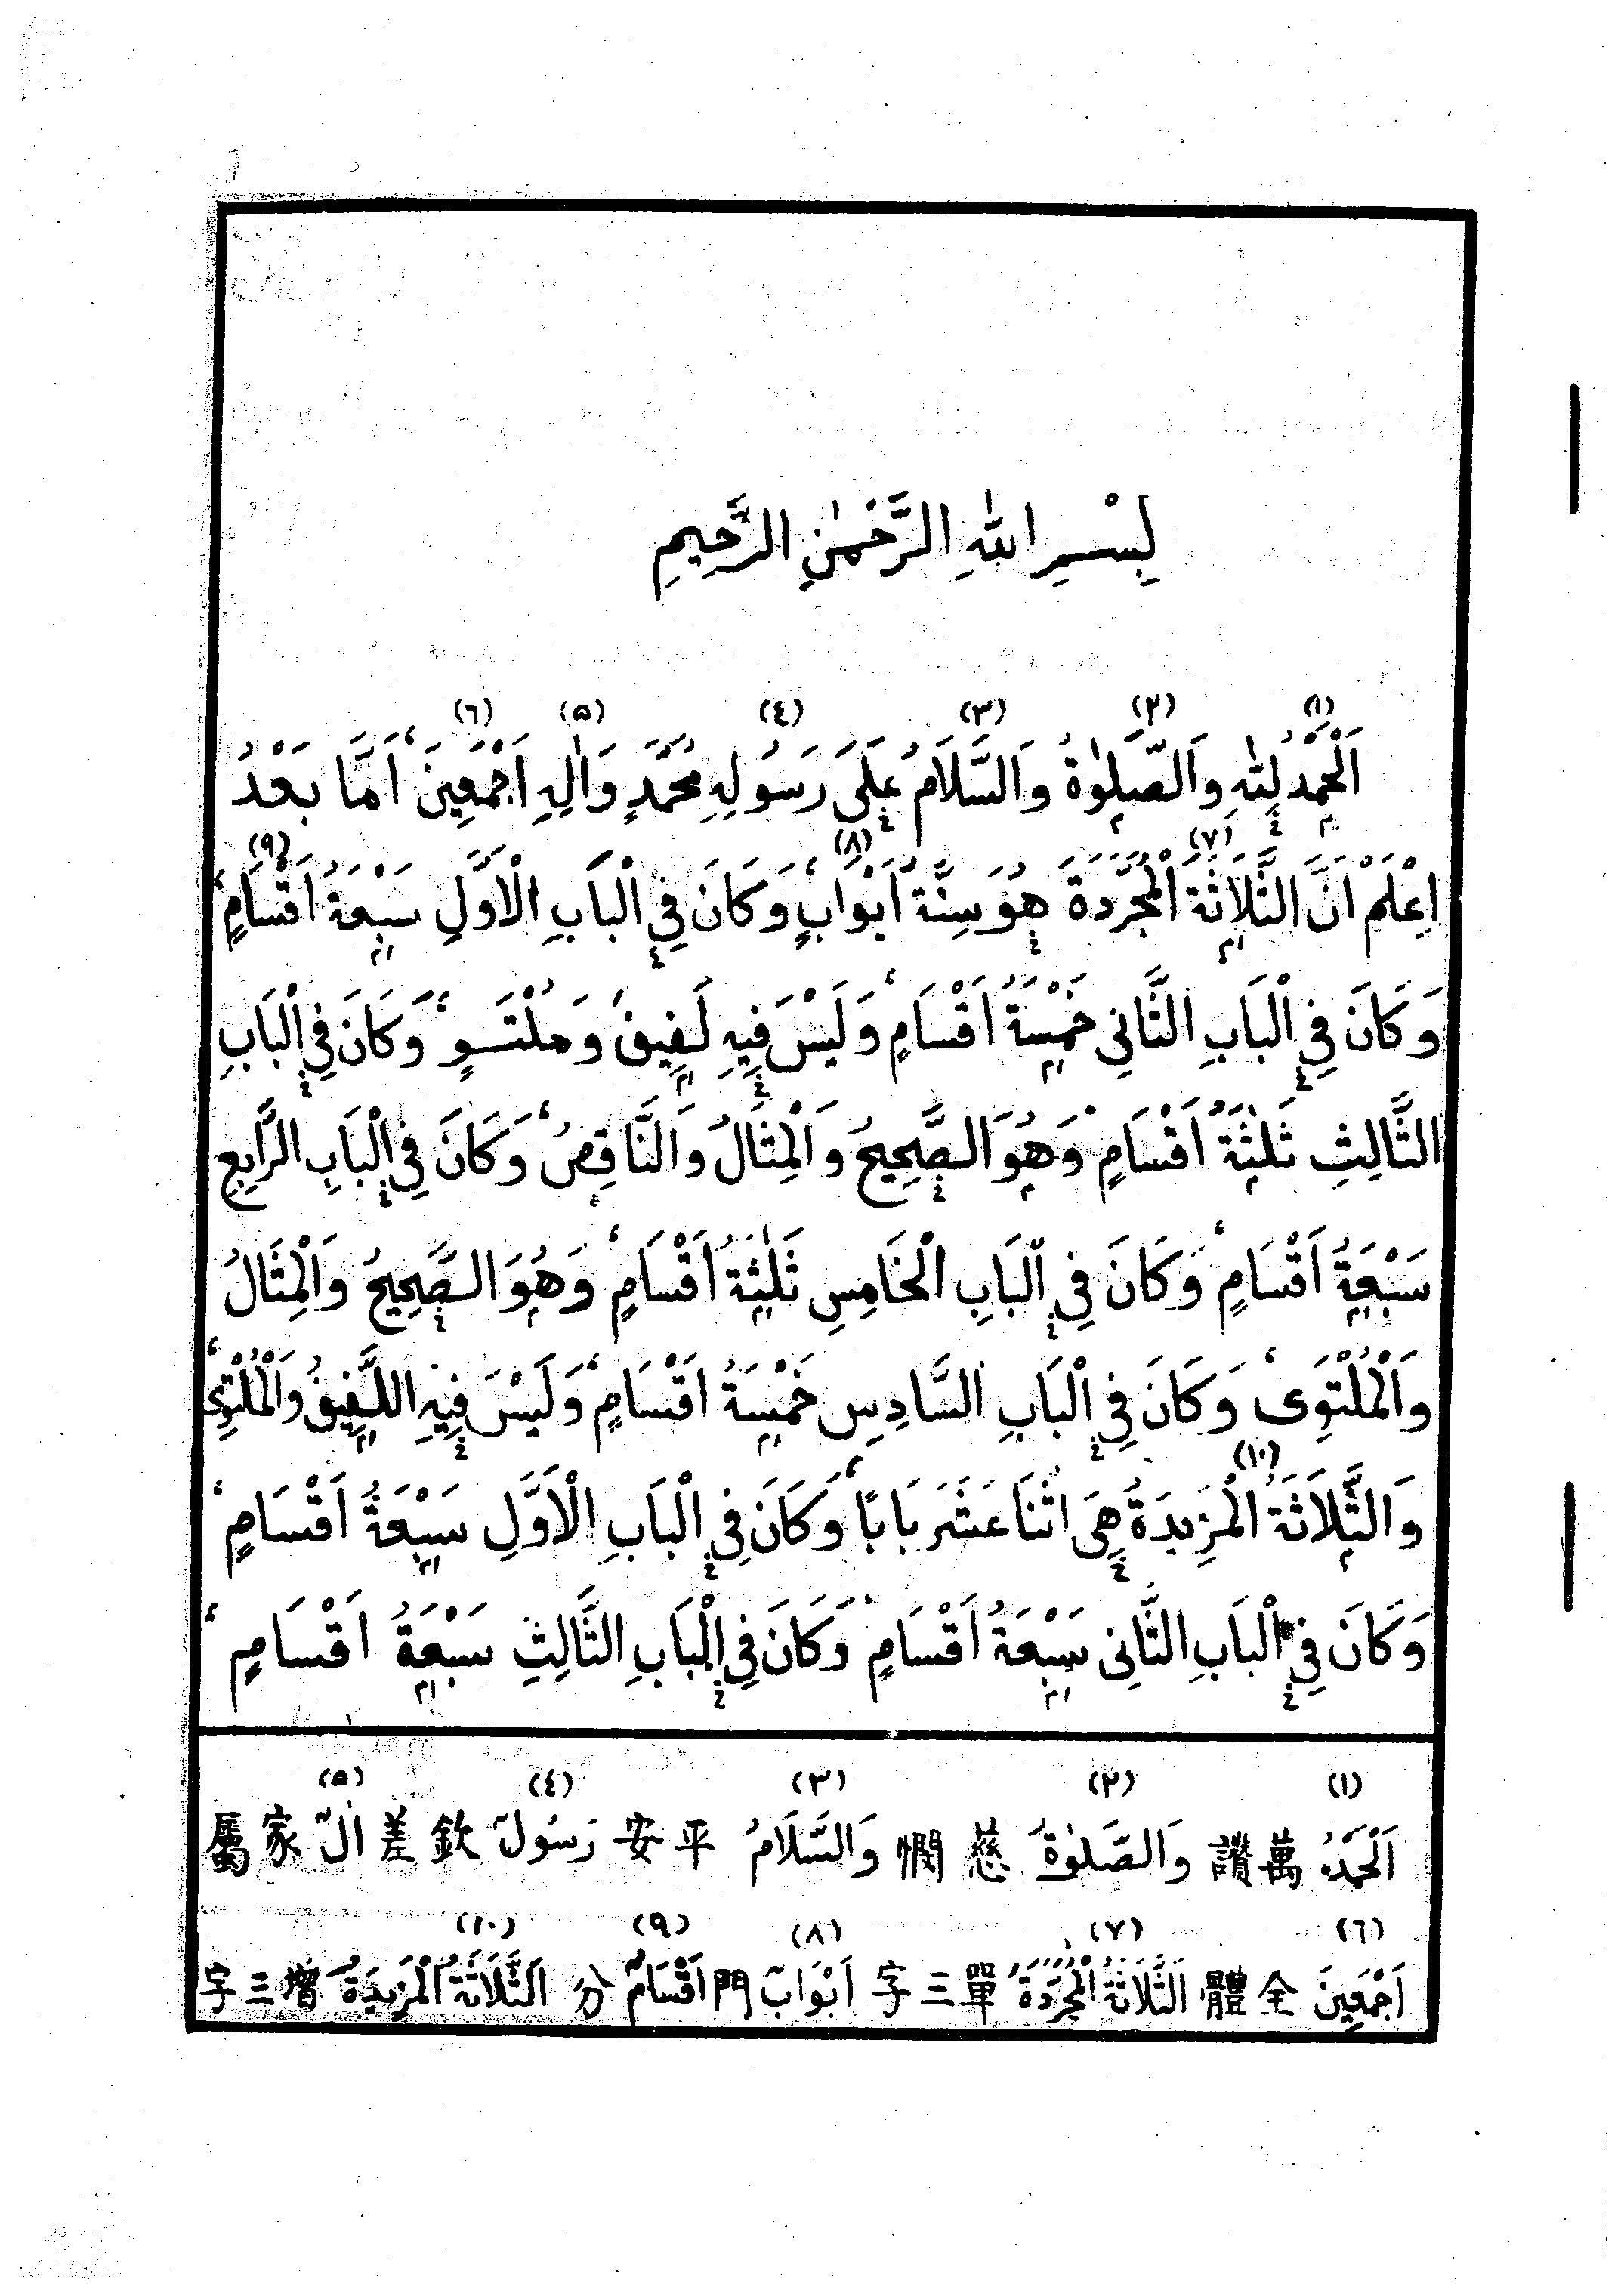 بِسْمِ اللّٰهِ الرَّحْمٰنِ الرَّحِيمِ
(١) (٢) (٣) (٤) (٥) (٦)
اَلْحَمْدُ لِلّٰهِ وَالصَّلٰوةُ وَالسَّلَامُ عَلَى رَسُولِهِ مُحَمَّدٍ وَاٰلِهِ اَجْمَعِينَ اَمَّا بَعْدُ
(٧) (٨) (٩)
اِعْلَمْ اَنَّ الثَّلَاثَةَ الْمُجَرَّدَةَ هُوَ سِتَّةُ اَبْوَابٍ وَكَانَ فِي الْبَابِ الْاَوَّلِ سَبْعَةُ اَقْسَامٍ
وَكَانَ فِي الْبَابِ الثَّانِى خَمْسَةُ اَقْسَامٍ وَلَيْسَ فِيهِ لَفِيفٌ وَمُلْتَوٍ وَكَانَ فِي الْبَابِ
الثَّالِثِ ثَلٰثَةُ اَقْسَامٍ وَهُوَ الصَّحِيحُ وَالْمِثَالُ وَالنَّاقِصُ وَكَانَ فِي الْبَابِ الرَّابِعِ
سَبْعَةُ اَقْسَامٍ وَكَانَ فِي الْبَابِ الْخَامِسِ ثَلٰثَةُ اَقْسَامٍ وَهُوَ الصَّحِيحُ وَالْمِثَالُ
وَالْمُلْتَوِى وَكَانَ فِي الْبَابِ السَّادِسِ خَمْسَةُ اَقْسَامٍ وَلَيْسَ فِيهِ اللَّفِيفُ وَالْمُلْتَوِى
(١٠)
وَالثَّلَاثَةُ الْمَزِيدَةُ هِىَ اثْنَا عَشَرَ بَابًا وَكَانَ فِي الْبَابِ الْاَوَّلِ سَبْعَةُ اَقْسَامٍ
وَكَانَ فِي الْبَابِ الثَّانِى سَبْعَةُ اَقْسَامٍ وَكَانَ فِي الْبَابِ الثَّالِثِ سَبْعَةُ اَقْسَامٍ
(١) (٢) (٣) (٤) (٥)
اَلْحَمْدُ 萬讚 وَالصَّلٰوةُ 慈憫 وَالسَّلَامُ 平安 رَسُولٌ 欽差 اٰلٌ 家屬
(٦) (٧) (٨) (٩) (١٠)
اَجْمَعِينَ 全體 اَلثَّلَاثَةُ الْمُجَرَّدَةُ 單三字 اَبْوَابٌ 門 اَقْسَامٌ 分 اَلثَّلَاثَةُ الْمَزِيدَةُ 增三字